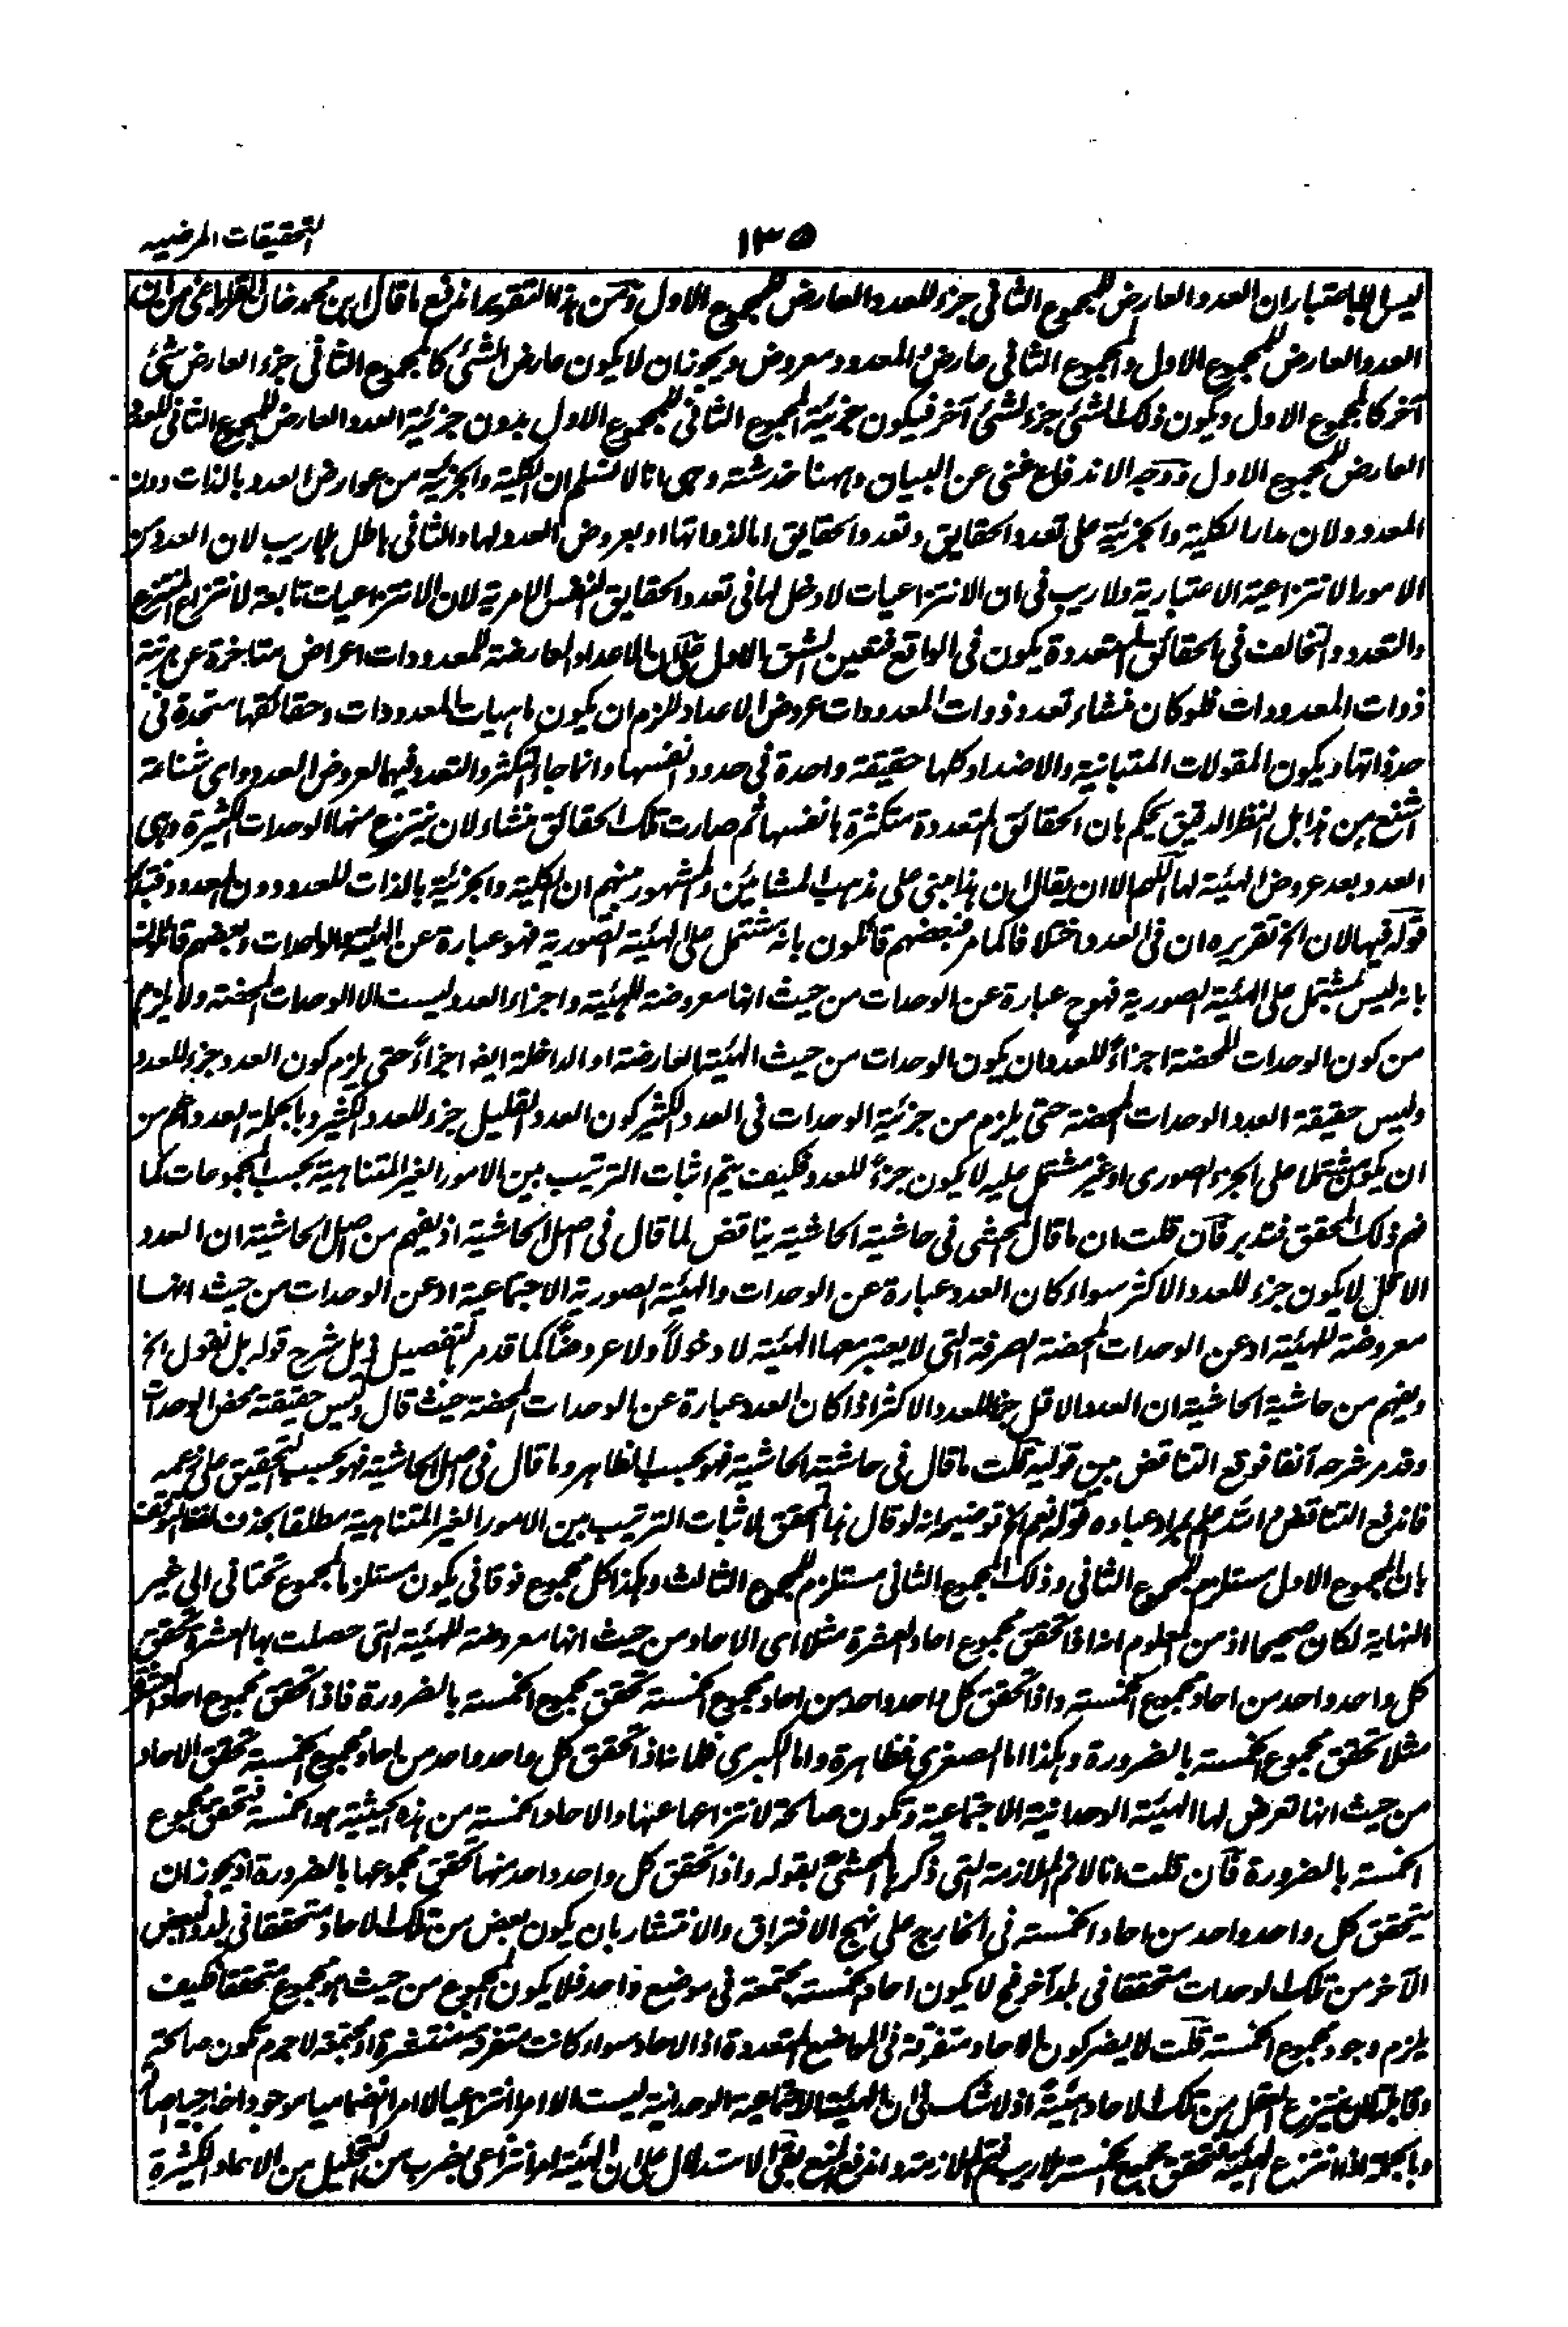 التحقيقات المرضيه
١٣٥
ليس الا باعتبار ان العدد العارض للمجموع الثاني جزء للعدد العارض للمجموع الاول ومن هذا التقرير اندفع ما قال ابن محمد خان من ان
العدد العارض للمجموع الاول والمجموع الثاني عارض والمعدود معروض ويجوز ان لا يكون عارض الشئ كالمجموع الثاني جزء العارض شئ
آخر كالمجموع الاول ويكون ذلك الشئ جزء لشئ آخر فيكون جزئية المجموع الثاني للمجموع الاول بدون جزئية العدد العارض للمجموع الثاني للعدد
العارض للمجموع الاول ووجه الاندفاع غني عن البيان وههنا خدشته وهي انا لا نسلم ان الكلية والجزئية من عوارض العدد بالذات دون
المعدود ولان مدار الكلية والجزئية على تعدد الحقايق وتعدد الحقايق اما لذواتها او بعروض العدد لها والثاني باطل بلا ريب لان العدد من
الامور الانتزاعية الاعتبارية ولا ريب في ان الانتزاعيات لا دخل لها في تعدد الحقايق النفس الامرية لان الانتزاعيات تابعة لانتزاع المنتزع
والتعدد والتخالف في الحقائق المتعددة يكون في الواقع فتعين الشق الاول كان الاعداد العارضة للمعدودات اعراض متاخرة عن مرتبة
ذوات المعدودات فلو كان منشاء تعدد ذوات المعدودات عروض الاعداد للزم ان يكون ماهيات المعدودات وحقائقها متحدة في
حد ذاتها ويكون المقولات المتباينة والاضداد كلها حقيقة واحدة في حدود انفسها وانما جاء التكثر والتعدد فيها لعروض العدد واي شناعة
اشنع من هذا بل النظر الدقيق يحكم بان الحقائق المتعددة متكثرة بانفسها ثم صارت تلك الحقائق منشاء لان ينتزع منها الوحدات الكثيرة وهي
العدد بعد عروض الهيئة لها اللهم الا ان يقال ان هذا مبني على مذهب المشائين والمشهور منهم ان الكلية والجزئية بالذات للعدد دون المعدود فتدبر
قوله فيها لان الخ تقريره ان في العدد اختلافا كما مر فبعضهم قائلون بانه مشتمل على الهيئة الصورية فهو عبارة عن الهيئة والوحدات وبعضهم قائلون
بانه ليس بمشتمل على الهيئة الصورية فهو ح عبارة عن الوحدات من حيث انها معروضة للهيئة واجزاء العدد ليست الا الوحدات المحضة ولا يلزم
من كون الوحدات المحضة اجزاءً للعدد ان يكون الوحدات من حيث الهيئة العارضة او الداخلة ايضا اجزاءً حتى يلزم كون العدد جزء للعدد
وليس حقيقة العدد الوحدات المحضة حتى يلزم من جزئية الوحدات في العدد الكثير كون العدد القليل جزء للعدد الكثير وبالجملة العدد اعم من
ان يكون مشتملا على الجزء الصوري او غير مشتمل عليه لا يكون جزءً للعدد فكيف يتم اثبات الترتيب بين الامور الغير المتناهية بحسب المجموعات كما
فهم ذلك المحقق فتدبر فان قلت ان ما قال المحشي في حاشية الحاشية يناقض لما قال في اصل الحاشية اذ يفهم من اصل الحاشية ان العدد
الاقل لا يكون جزء للعدد الاكثر سواء كان العدد عبارة عن الوحدات والهيئة الصورية الاجتماعية او عن الوحدات من حيث انها
معروضة للهيئة او عن الوحدات المحضة الصرفة التي لا يعتبر معها الهيئة لا دخولاً ولا عروضاً كما قد مر بالتفصيل في ذيل شرح قوله بل نقول الخ
ويفهم من حاشية الحاشية ان العدد الاقل جزء للعدد الاكثر اذا كان العدد عبارة عن الوحدات المحضة حيث قال وليس حقيقته محض الوحدات
وقد مر شرحه آنفا فوقع التناقض بين قوليه قلت ما قال في حاشية الحاشية فهو بحسب الظاهر وما قال في اصل الحاشية فهو بحسب التحقيق على زعمه
فاندفع التناقض والله اعلم بمراد عباده قوله نعم الخ توضيحه انه لو قال هذا المحقق لاثبات الترتيب بين الامور الغير المتناهية مطلقا بحذف لفظ التوقف
بان المجموع الاول مستلزم للمجموع الثاني وذلك المجموع الثاني مستلزم للمجموع الثالث وهكذا كل مجموع فوقاني يكون مستلزما لمجموع تحتاني الى غير
النهاية لكان صحيحا اذ من المعلوم انه اذا تحقق مجموع احاد العشرة مثلا اي الاحاد من حيث انها معروضة للهيئة التي حصلت بها العشرة تحقق
كل واحد واحد من احاد مجموع الخمسة واذا تحقق كل واحد واحد من احاد مجموع الخمسة تحقق مجموع الخمسة بالضرورة فاذا تحقق مجموع احاد العشرة
مثلا تحقق مجموع الخمسة بالضرورة وهكذا اما الصغرى فظاهرة واما الكبرى فلما فاذا تحقق كل واحد واحد من احاد مجموع الخمسة تحقق الاحاد
من حيث انها تعرض لها الهيئة الوحدانية الاجتماعية وتكون صالحة لانتزاعها عنها والاحاد الخمسة من هذه الحيثية هو الخمسة فتحقق مجموع
الخمسة بالضرورة فان قلت انا لا نم الملازمة التي ذكرها المحشي بقوله واذا تحقق كل واحد واحد منها تحقق مجموعها بالضرورة اذ يجوز ان
يتحقق كل واحد واحد من احاد الخمسة في الخارج على نهج الافتراق والانتشار بان يكون بعض من تلك الاحاد متحققا في بلد وبعض
الآخر من تلك الوحدات متحققا في بلد آخر فح لا يكون احاد الخمسة مجتمعة في موضع واحد فلا يكون المجموع من حيث هو مجموع متحققا فكيف
يلزم وجود مجموع الخمسة قلت لا يضر كون الاحاد متفرقة في المواضع المتعددة اذ الاحاد سواء كانت متفرقة منتشرة او مجتمعة لا جرم تكون صالحة
وقابلة لان ينتزع العقل من تلك الاحاد هيئة اذ لا شك في ان الهيئة الاجتماعية الوحدانية ليست الا امرا انتزاعيا لا امر انضماميا موجودا خارجيا اصلا
وبالجملة اذا انتزع الهيئة تحقق مجموع الخمسة بلا ريب فتم الملازمة واندفع المنع بقي الاستدلال على ان الهيئة امر انتزاعي بضرب من التحليل من الاعداد الكثيرة